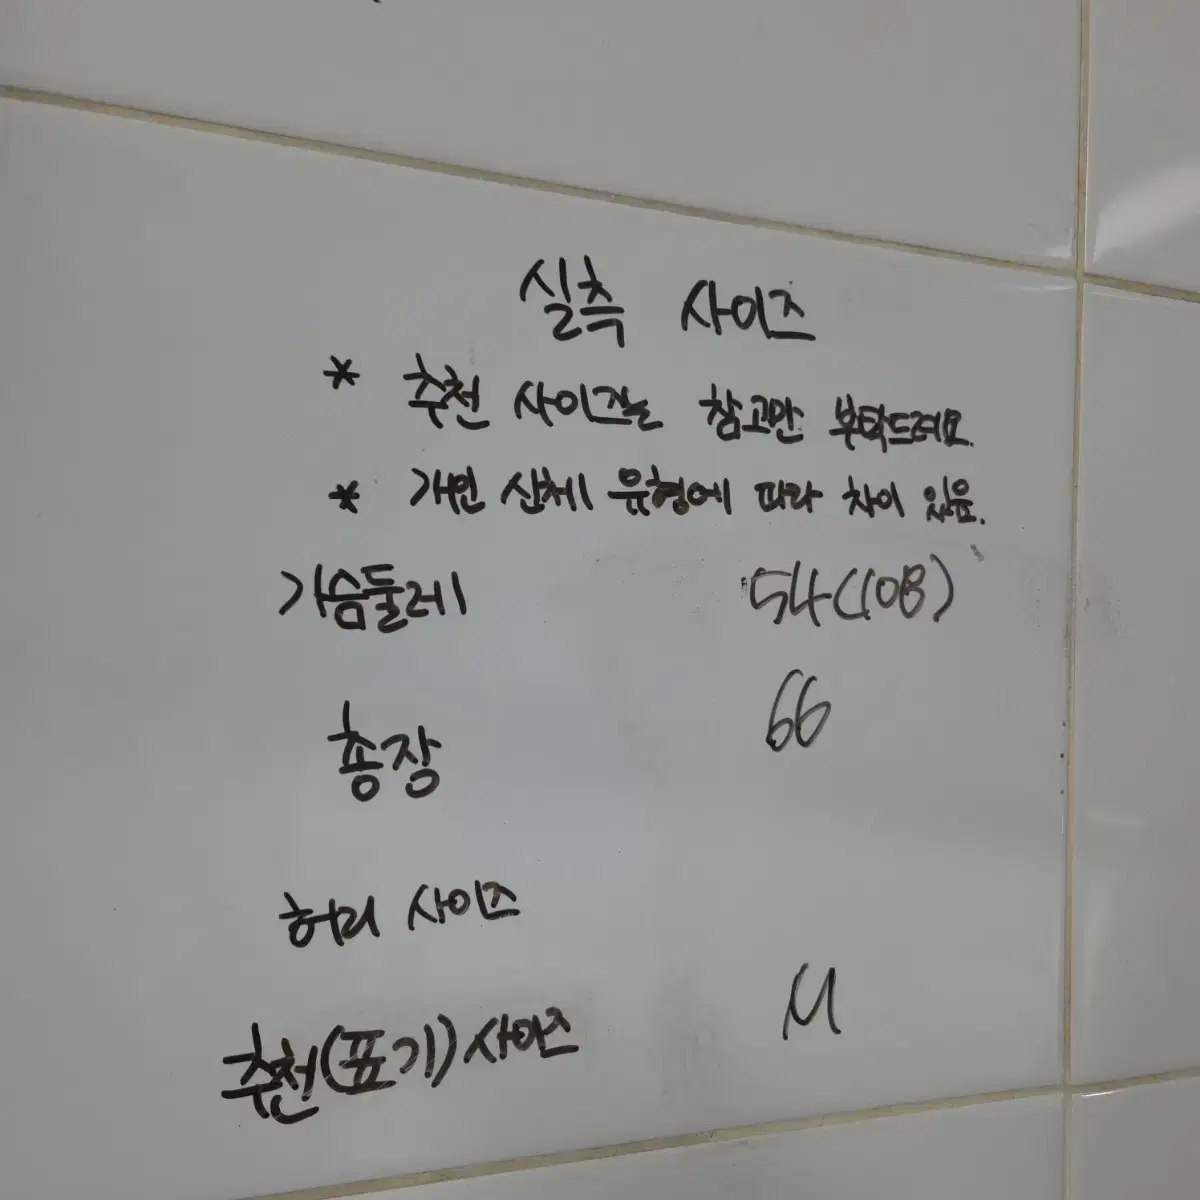 실측 사이즈
* 추천 사이즈는 참고만 부탁드려요.
* 개인 신체 유형에 따라 차이 있음.
가슴둘레 54(108)
총장 66
허리 사이즈
추천(표기) 사이즈 M